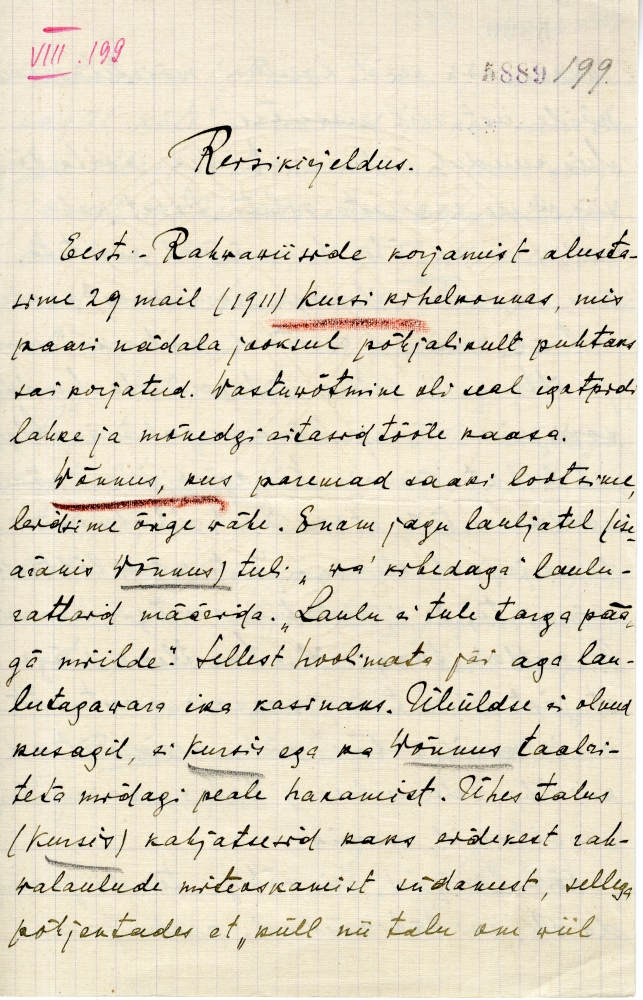 VIII. 199
5889/199
Reisikirjeldus.
Eesti-Rahwawiiside korjamist alusta-
sime 29 mail (1911) Kursi kihelkonnas, mis
paari nädala jooksul põhjalikult puhtaks
sai korjatud. Wastuwõtmine oli seal igatpidi
lahke ja mõnedgi aitasid tööle kaasa.
Wõnnus, kus paremad saaki lootsime,
leidsime õige wähe. Enam jagu lauljatel (in
äänis Wõnnus) tuli „wä' kibedaga" laulu-
rattaid määrida. „Laulu ei tule targa pää-
gä miilde". Sellest hoolimata jäi aga lau-
lutagawara ika kasinaks. Üleüldse ei olnud
kusagil, ei Kursis ega ka Wõnnus taalri-
teta midagi peale hakamist. Ühes talus
(Kursis) kahjatsesid kaks eidekest rah-
walaulude miteoskamist südamest, sellega
põhjentades et „küll nü talu om wiil